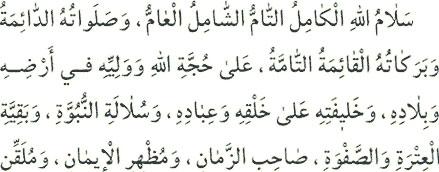 سَلَامُ اللهِ الْكَامِلُ التَّامُّ الشَّامِلُ الْعَامُّ، وَصَلَوَاتُهُ الدَّائِمَةُ
وَبَرَكَاتُهُ الْقَائِمَةُ التَّامَّةُ، عَلىٰ حُجَّةِ اللهِ وَوَلِيِّهِ فـي أَرْضِـهِ
وَبِلَادِهِ، وَخَلِيفَتِهِ عَلىٰ خَلْقِهِ وَعِبَادِهِ، وَسُلَالَةِ النُّبُوَّةِ، وَبَقِيَّةِ
الْعِتْرَةِ وَالصَّفْوَةِ، صَاحِبِ الزَّمَانِ، وَمُظْهِرِ الْإِيمَانِ، وَمُلَقِّنِ